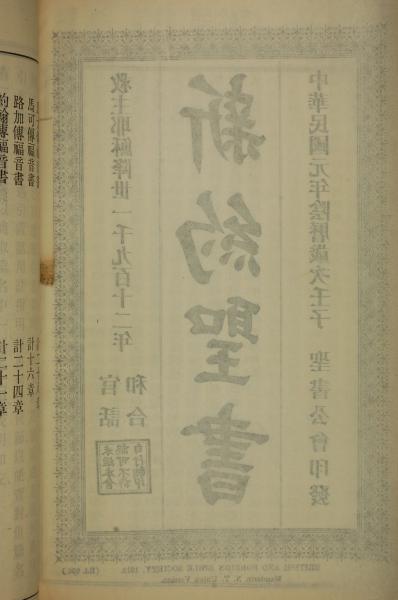 救主耶穌降世一千九百十二年
官話
和合
未經本會
認可不許
自行翻印
新約聖書
中華民國元年陰曆歲次壬子 聖書公會印發
BRITISH AND FOREIGN BIBLE SOCIETY, 1912.
Mandarin N. T. Union Version.
馬可傳福音書 計十六章
路加傳福音書 計二十四章
約翰傳福音書 計二十一章